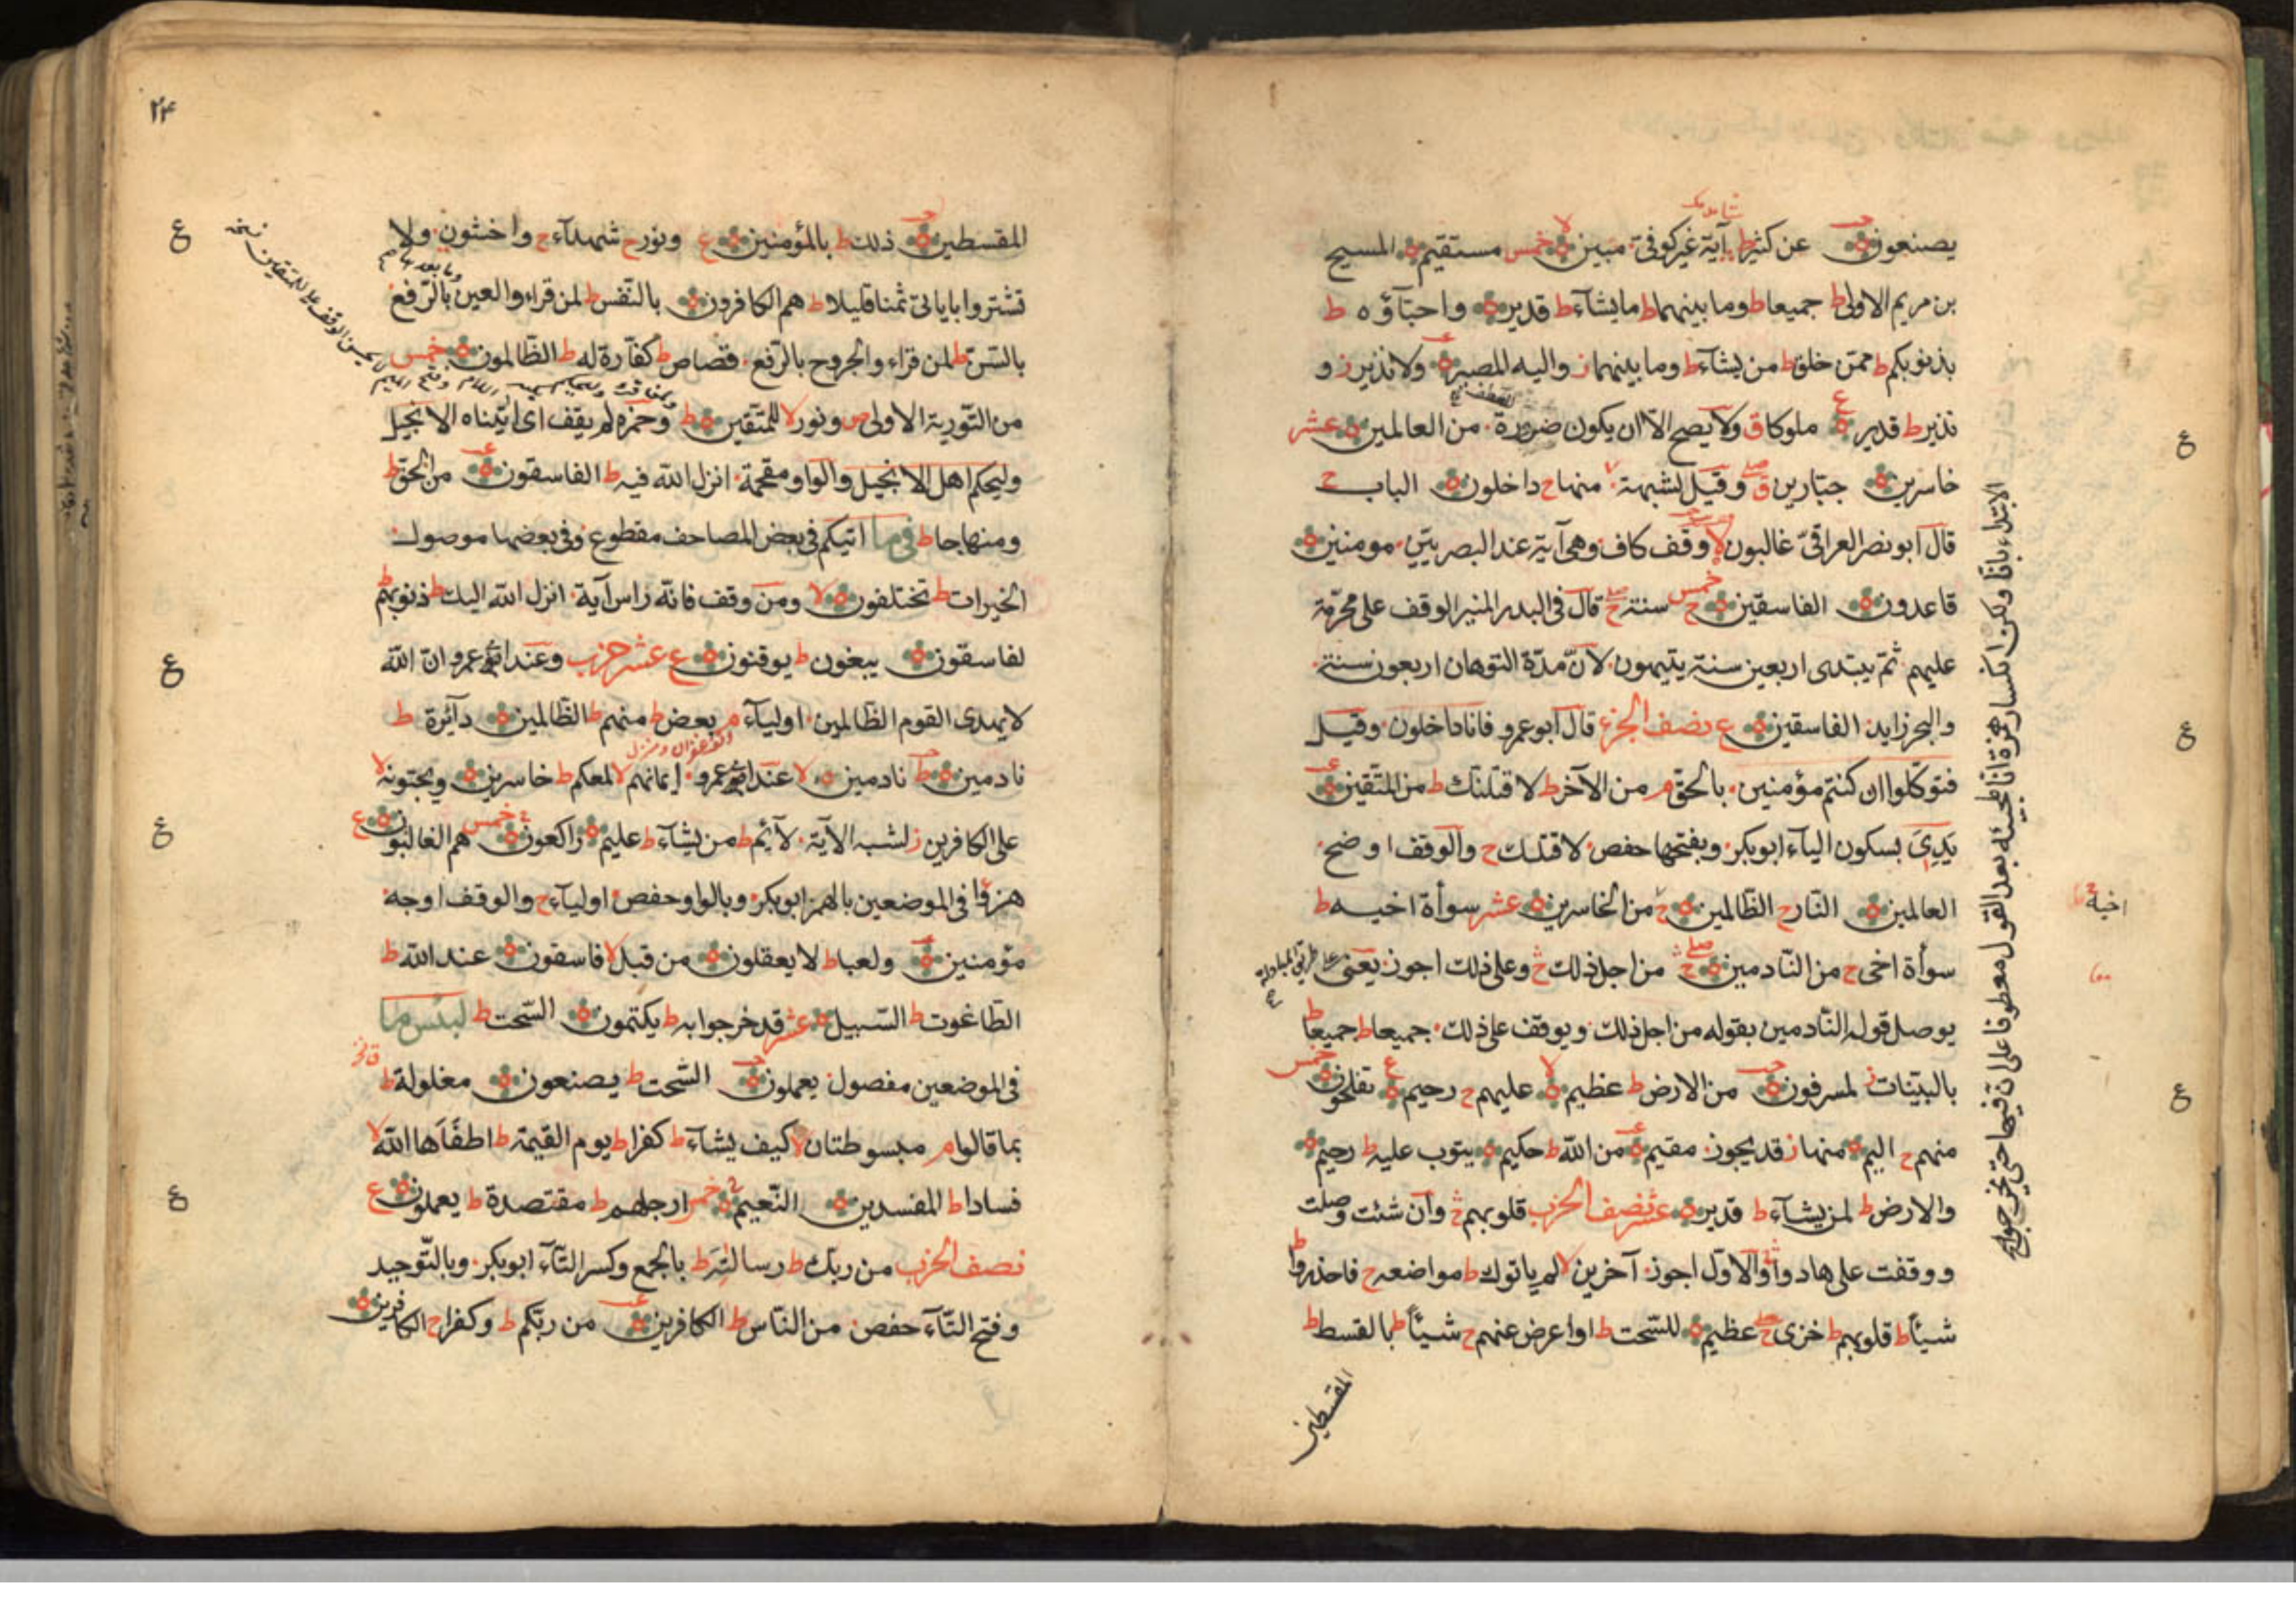 يصنعون عن كثير ط آية غير كوفى مبين لا خمس مستقيم المسيح
بن مريم الاولى ط جميعا ط وما بينهما ط ما يشآء ط قدير واحبآؤه ط
بذنوبكم ط ممّن خلق ط من يشآء ط وما بينهما ز واليه المصير ولا نذير ز و
نذير ط قدير ع ملوكا ق ولا يصح الّا ان يكون ضرورة من العالمين عشر
خاسرين جبّارين ق صلے وقيل لشبهة منها ح داخلون الباب ح
قال ابو نصر العراقىّ غالبون لا وقف كاف وهى آية عند البصريّين مومنين
قاعدون الفاسقين ح خمس سنة ج قال فى البدر المنير الوقف على محرّمة
عليهم ثمّ يبتدى اربعين سنة يتيهون لانّ مدّة التوهان اربعون سنة
والبحر زايد الفاسقين ع نصف الجزء قال ابو عمرو فانا داخلون وقيل
فتوكّلوا ان كنتم مؤمنين بالحقّ م من الآخر ط لاقتلنّك ط من المتّقين
يَدِىَ بسكون اليآء ابو بكر وبفتحها حفص لاقتلك ح والوقف اوضح
العالمين النّار ح الظّالمين ح من الخاسرين عشر سوأة اخيه ط
سوأة اخى ح من النّادمين صلے ج من اجل ذلك ج وعلى ذلك اجوز يعنى
يوصل قوله النّادمين بقوله من اجل ذلك ويوقف على ذلك جميعا ط جميعا ط
بالبيّنات ز لمسرفون من الارض ط عظيم لا عليهم ح رحيم ع تفلحون خمس
منهم ح اليم منها ز قد يجوز مقيم من الله ط حكيم يتوب عليه ط رحيم
والارض ط لمن يشآء ط قدير عشر نصف الحزب قلوبهم ج وان شئت وصلت
ووقفت على هادوا والاوّل اجوز آخرين لا لم ياتوك ط مواضعه ح فاحذروا ط
شيئا ط قلوبهم ط خزى ج عظيم للسّحت ط او اعرض عنهم ح شيئا ط بالقسط ط
المقسطين
الابتداء بانّا وكن انكسار همزة انّا لمجيئه بعد القول معطوفا على انّ فيها حتى يخرجوا ج
اخيه ح
٢٤
المقسطين ذلك ط بالمؤمنين ع ونور ح شهدآء ح واخشون ولا
تشتروا باياتى ثمنا قليلا ط هم الكافرون بالنّفس ط لمن قراء والعين بالرّفع
وما بعدها
بالسّن ط لمن قراء والجروح بالرّفع قصاص ط كفّارة له ط الظّالمون خمس
من التّورية الاولى ص ونور لا للمتّقين ط وحمزة لم يقف اى اتيناه الانجيل
وليحكم اهل الانجيل والواو مقحمة انزل الله فيه ط الفاسقون من الحق ط
ومنهاجا ط فى ما اتيكم فى بعض المصاحف مقطوع وفى بعضها موصول
الخيرات ط تختلفون لا ومن وقف فانّه راس آية انزل الله اليك ط ذنوبهم ط
لفاسقون يبغون ط يوقنون ع عشر حزب وعند ابى عمرو انّ الله
لا يهدى القوم الظّالمين اوليآء م بعض ط منهم ط الظّالمين دآئرة ط
نادمين ط نادمين لا عند ابى عمرو ايمانهم لا لمعكم ط خاسرين ويحبّونه لا
على الكافرين ز لشبه الآية لآئم ط من يشآء ط عليم راكعون خمس هم الغالبون ع
هزوًا فى الموضعين بالهمز ابو بكر وبالواو حفص اوليآء ح والوقف اوجه
مؤمنين ولعبا ط لا يعقلون من قبل لا فاسقون عند الله ط
الطّاغوت ط السّبيل عشر قد خرجوا به ط يكتمون السّحت ط لبئس ما
فى الموضعين مفصول يعملون السّحت ط يصنعون مغلولة ط
بما قالوا م مبسوطتان لا كيف يشآء ط كفرا ط يوم القيمة ط اطفَاَها الله لا
فسادا ط المفسدين النّعيم خمس ارجلهم ط مقتصدة ط يعملون ع
نصف الحزب من ربّك ط رسالته ط بالجمع وكسر التّآء ابو بكر وبالتّوحيد
وفتح التّآء حفص من النّاس ط الكافرين من ربّكم ط وكفرا ح الكافرين